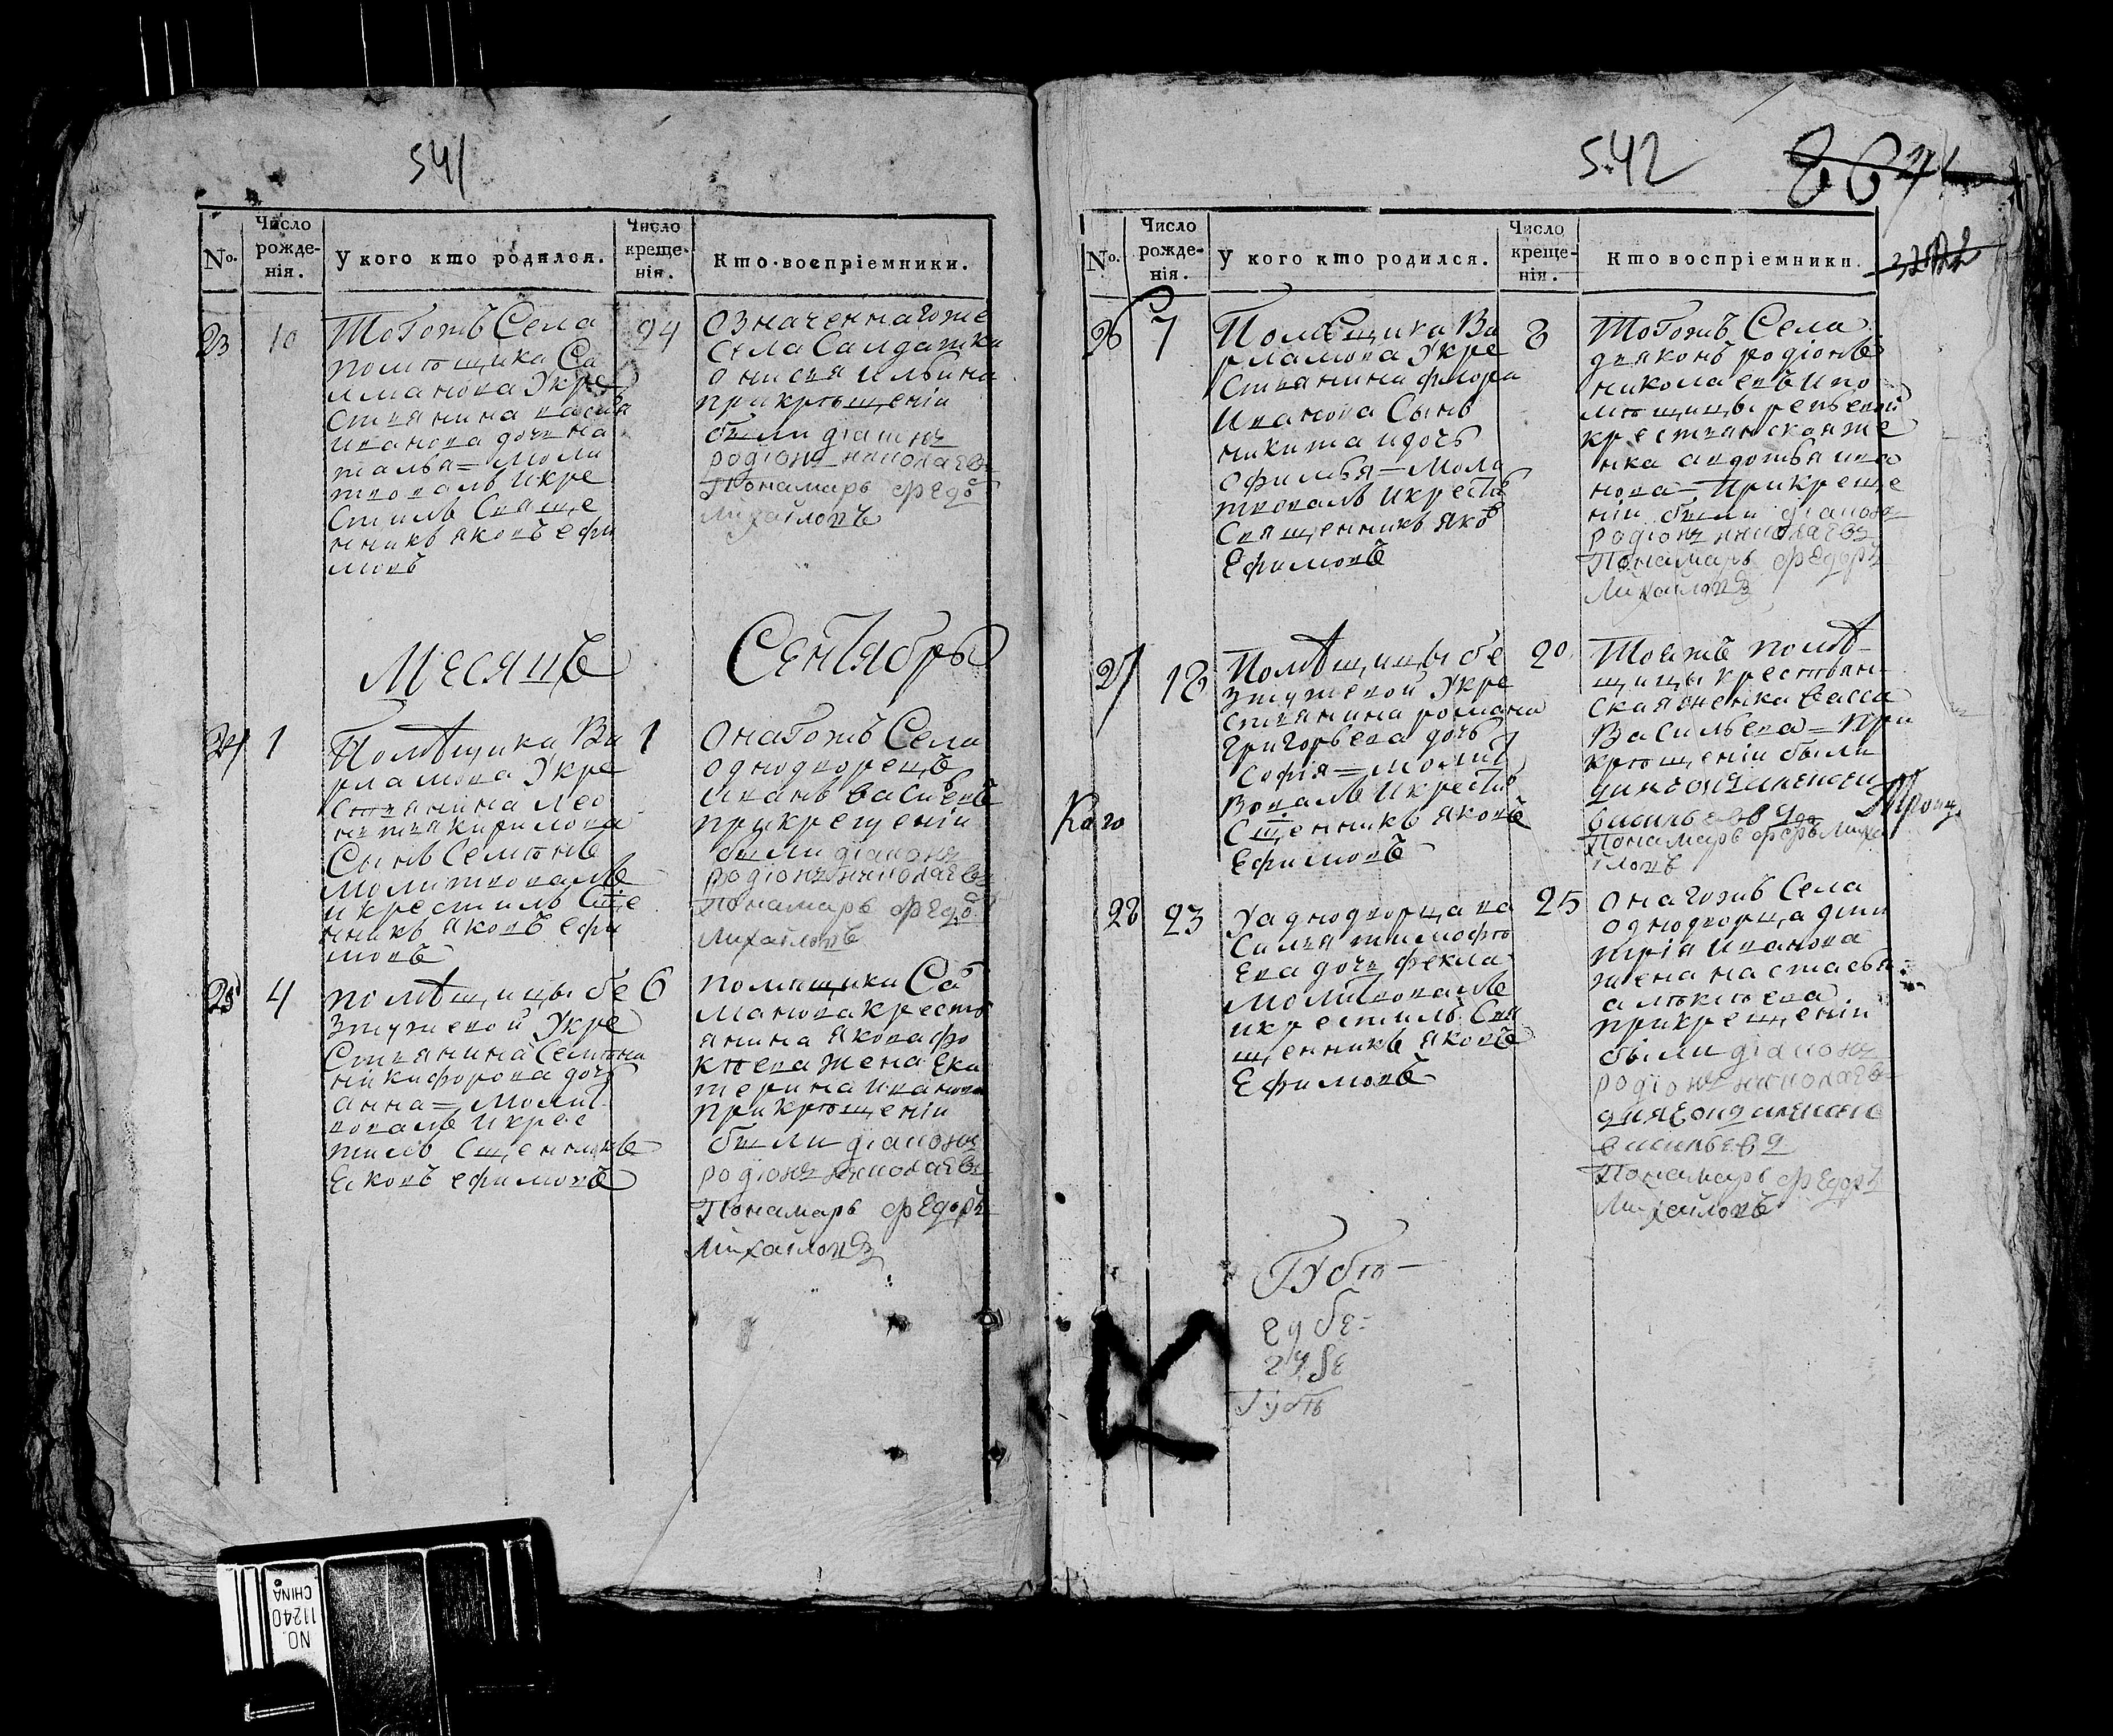 541
No.
Число рожденія.
У кого кто родился.
Число крещенія.
Кто воспріемники.
23
10
Тогожъ Села
помѣщика Са
иманова Укре
стьянина васил
иванова дочь на
талья = моли
твовалъ икре
стилъ Свяще
нникъ яковъ ефи
мовъ
24
Означеннагоже
Села Салдатка
онисья ильина
прикрѣщеніи
были діаконъ
родіонъ николаевъ
Пономарь Федо
михайловъ
Месяцъ
Сентябрь
24
1
Помѣщика Ва
рламова Укре
стьянина лео
нтья кирилова
Сынъ Семіонъ
молитвовалъ
и крестилъ Сще
нникъ яковъ ефи
мовъ
1
Онагожъ Села
однодворецъ
иванъ васильевъ
прикрещеніи
были діаконъ
родіонъ николаевъ
Пономарь Федо
михайловъ
25
4
помѣщицы бе
зтужевой Укре
стьянина Семіона
никифорова дочь
анна = молит
вовалъ икрес
тилъ Сщенникъ
яковъ ефимовъ
6
помѣщика Са
манова кресть
янина якова фо
кѣева жена Ека
терина иванова
прикрѣщеніи
были діаконъ
родіонъ николаевъ
Пономарь Федоръ
михайловъ
542
No.
Число рожденія.
У кого кто родился.
Число крещенія.
Кто воспріемники.
26
7
Помещика Ва
рламова Укре
стьянина флора
Иванова Сынъ
никита идочь
офимья = Моли
твовалъ икрести
Священникъ яко
Ефимовъ
8
Тогожъ Села
дьяконъ родіонъ
николаевъ ипо
мѣщицы
крестьянская же
нка авдотья ива
нова = Прикреще
ніи были діаконъ
родіонъ николаевъ
Пономарь Федоръ
михайловъ
27
18
Помѣщицы бе
зтужевой Укре
стьянина романа
григорьева дочь
софія = молит
вовалъ икрести
Сщенникъ яковъ
Ефимовъ
20
Тоежъ помѣ
щицы крестьян
ская женка васса
Васильева = При
крѣщеніи были
васильевъ
Пономарь Федръ миха
йловъ
28
23
У однодворца ва
силья тимофѣ
Ева дочь фекла
молитвовалъ
икрестилъ Свя
щенникъ яковъ
Ефимовъ
25
Онагожъ Села
однодворца дми
трія иванова
жена настасья
алѣксѣева
прикрещеніи
были діаконъ
родіонъ николаевъ
васильевъ
Пономарь Федоръ
михайловъ
Губѣ
губе
губе
Губѣ
NO.
11240
CHINA